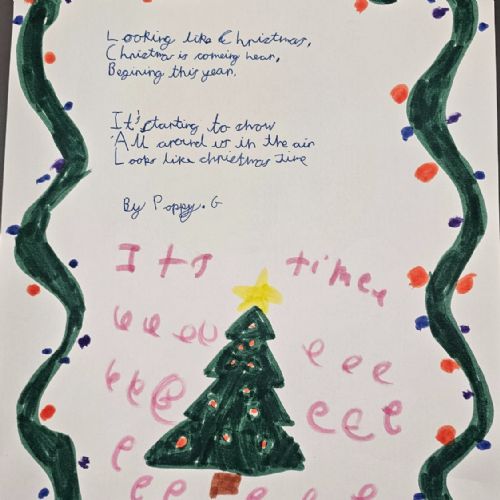 Looking like Christmas,
Christmas is comeing hear,
Begining this year.
It's starting to show
All around us in the air
Looks like christmas time
By Poppy. G
Its timee
eeee eee
eee eee
e
ee